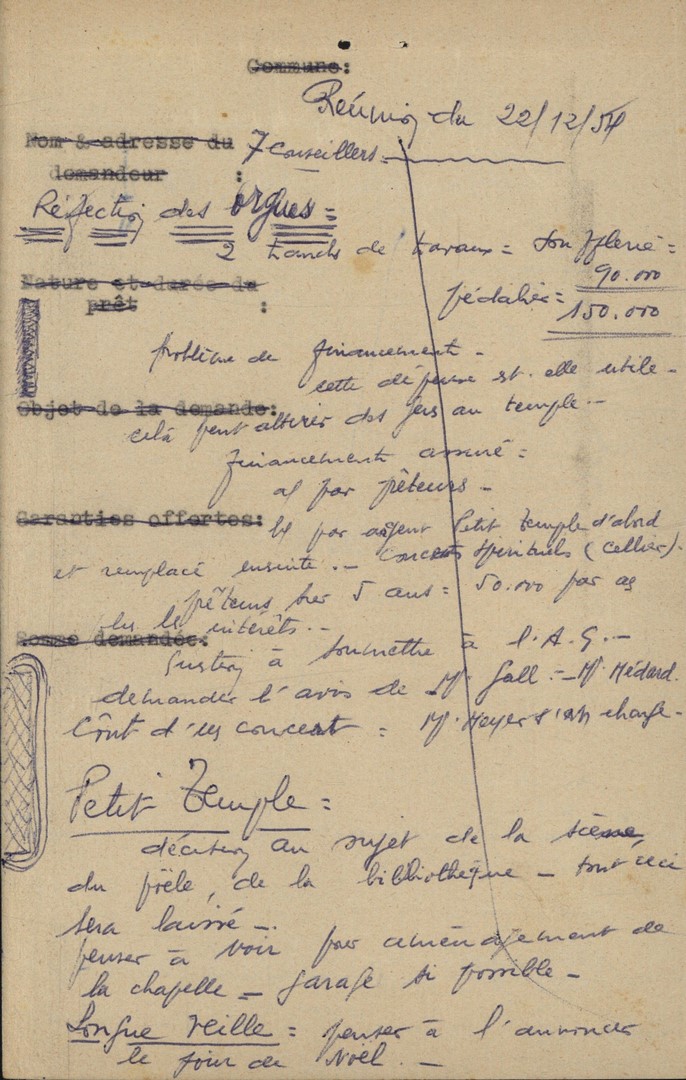 Commune:
Réunion du 22/12/54
Nom & adresse du
7 Conseillers =
demandeur :
Réfection des Orgues =
2 tranches de travaux = Soufflerie =
90.000
Nature et durée du
prêt :
pédalier =
150.000
problème de financement -
cette dépense est-elle utile -
Objet de la demande:
celà peut attirer des gens au temple. -
financement assuré =
a/ par prêteurs -
Garanties offertes:
b/ par argent Petit Temple d'abord
et remplacé ensuite. - Concerts spirituels (Cellier).
prêteurs sur 5 ans = 50.000 par an
les intérêts. -
Somme demandée:
Question à soumettre à l'A.G. -
demander l'avis de Mr. Gall. - Mr. Médard.
Coût d'un concert = Mr. Meyer s'en charge -
Petit Temple =
décision au sujet de la scène,
du poële, de la bibliothèque - tout ceci
sera laissé -.
penser à voir pour aménagement de
la chapelle - garage si possible -
Longue Veille = penser à l'annoncer
le jour de Noël. -